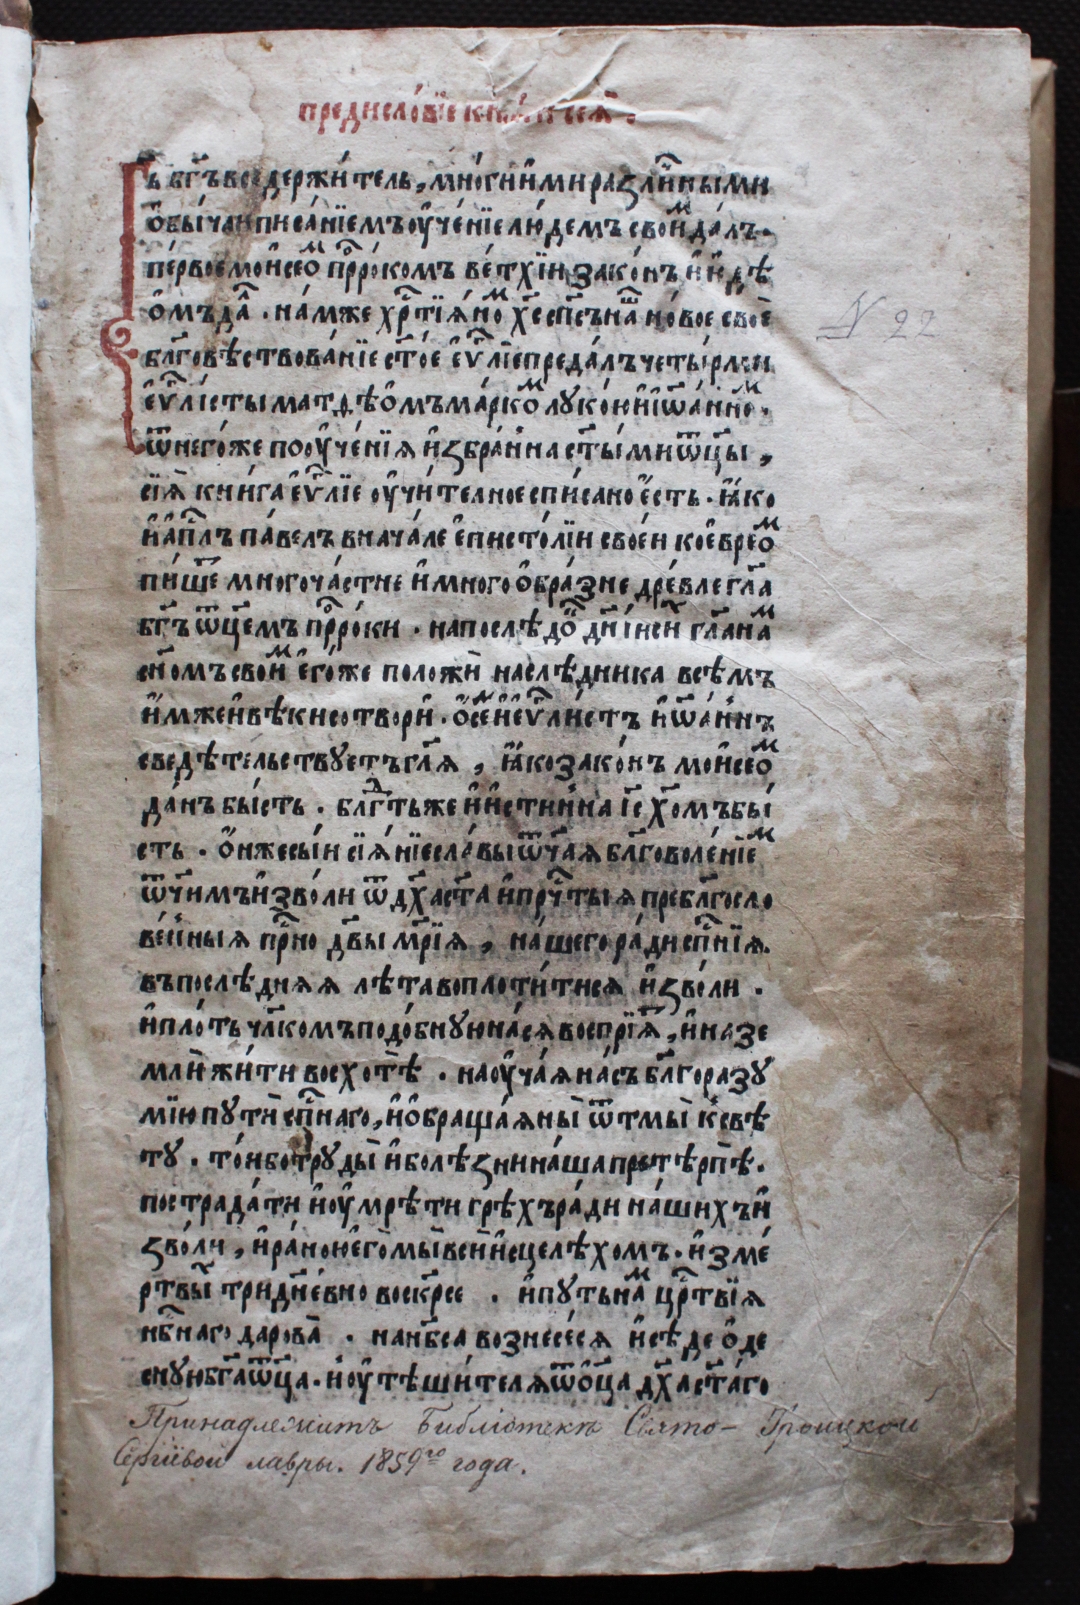 предисло́вїе кни́ги сеѧ̀ .
Гь бг҃ъ вседержи́тель, мно́гими и҆ разли́чными
ѻ҆бы́чаи писа́нїемъ оу҆че́нїе лю́демъ свои̑ᵐ да́лъ.
пе́рвое мѡѷсеоᵐ прⷪ҇ро́комъ ве́тхїи зако́нъ и҆ и҆ꙋдѣ
ѡ҆мъ да̑ . на́м же хрⷭ҇тїѧ́ноᵐ хс҃ сп҃съ на́шъ но́вое своѐ
бл҃говѣствова́нїе ст҃о́е є҆ѵⷢ҇лїе преда́лъ четы́рми
є҆ѵⷢ҇ли́сты матѳѣ́ѡмъ ма́ркоᵐ лꙋко́ю и҆ і҆ѡа́нноᵐ.
ѿ него́же поꙋче́нїѧ и҆збра́нна ст҃ы́ми ѿц҃ы ,
сїѧ̀ кни́га є҆ѵⷢ҇лїе оу҆чи́телное спи́сано є҆́сть . ꙗ҆́ко
и҆ а҆пⷭ҇лъ па́велъ внача́ле є҆писто́лїи свое́и ко є҆вре́оᵐ
пи́шетъ многоча́стне и҆ многоѻ҆бра́зне дре́вле гл҃а
бг҃ъ ѿц҃емъ прⷪ҇ро́ки . напослѣ́докъ дн҃іи си́хъ гл҃а наᵐ
сн҃омъ свои̑ᵐ є҆го́же положѝ наслѣ́дника всѣ́мъ
и҆́мже и҆ вѣ́ки сотворѝ . ѻ҆ сеᵐ и҆ є҆ѵⷢ҇ли́стъ и҆ѡа́ннъ
сведѣ́тельствꙋетъ гл҃ѧ , ꙗ҆́ко зако́нъ мѡѷсе́оᵐ
да́нъ бы́сть . блгⷣть же и҆ и҆́стинна і҆с҃ хⷭ҇омъ бы́
сть . ѻ҆́нже сы́и сїѧ́нїе сла́вы ѿч҃аѧ бл҃говоле́нїеᵐ
ѿч҃имъ и҆зво́ли ѿ дх҃а ст҃а и҆ прчⷭ҇тыѧ пребл҃госло
ве́нныѧ прⷭ҇но дв҃ы мр҃їѧ , на́шего ра́ди сп҃нїѧ.
въ послѣ́днѧѧ лѣ́та воплоти́тисѧ и҆зво́ли .
и҆ пло́ть чл҃комъ подо́бнꙋю на сѧ̀ воспрїѧ́тъ, и҆ на зе
млѝ жи́ти восхотѣ̀ . наꙋча́ѧ на́съ бл҃горазꙋ
мїю пꙋтѝ сп҃наго, и҆ ѻ҆браща́ѧ ны̀ ѿ тмы̀ к̾ свѣ
тꙋ . то́и бо трꙋды̀ и҆ болѣ́зни на́ша претє́рпѣ.
пострада́ти и҆ оу҆мрѣ́ти грѣ́хъ ра́ди на́шихъ и҆
зво́ли , и҆ ра́ною є҆го̀ мы̀ всѝ и҆сцелѣ́хомъ . и҆з ме́
ртвы́хъ тридн҃е́вно воскрⷭ҇е . и҆ пꙋть наᵐ црⷭ҇твїѧ
нбⷭ҇наго дарова̀ . на нб҃са вознесе́сѧ и҆ сѣ́де ѻ҆де
снꙋю бг҃а ѿц҃а . и҆ оу҆тѣ́шителѧ ѿ ѻ҆ц҃а дх҃а ст҃а́го
Принадлежитъ Библіотекѣ Свято-Троицкой
Сергіевой лавры. 1859го года.
N 22